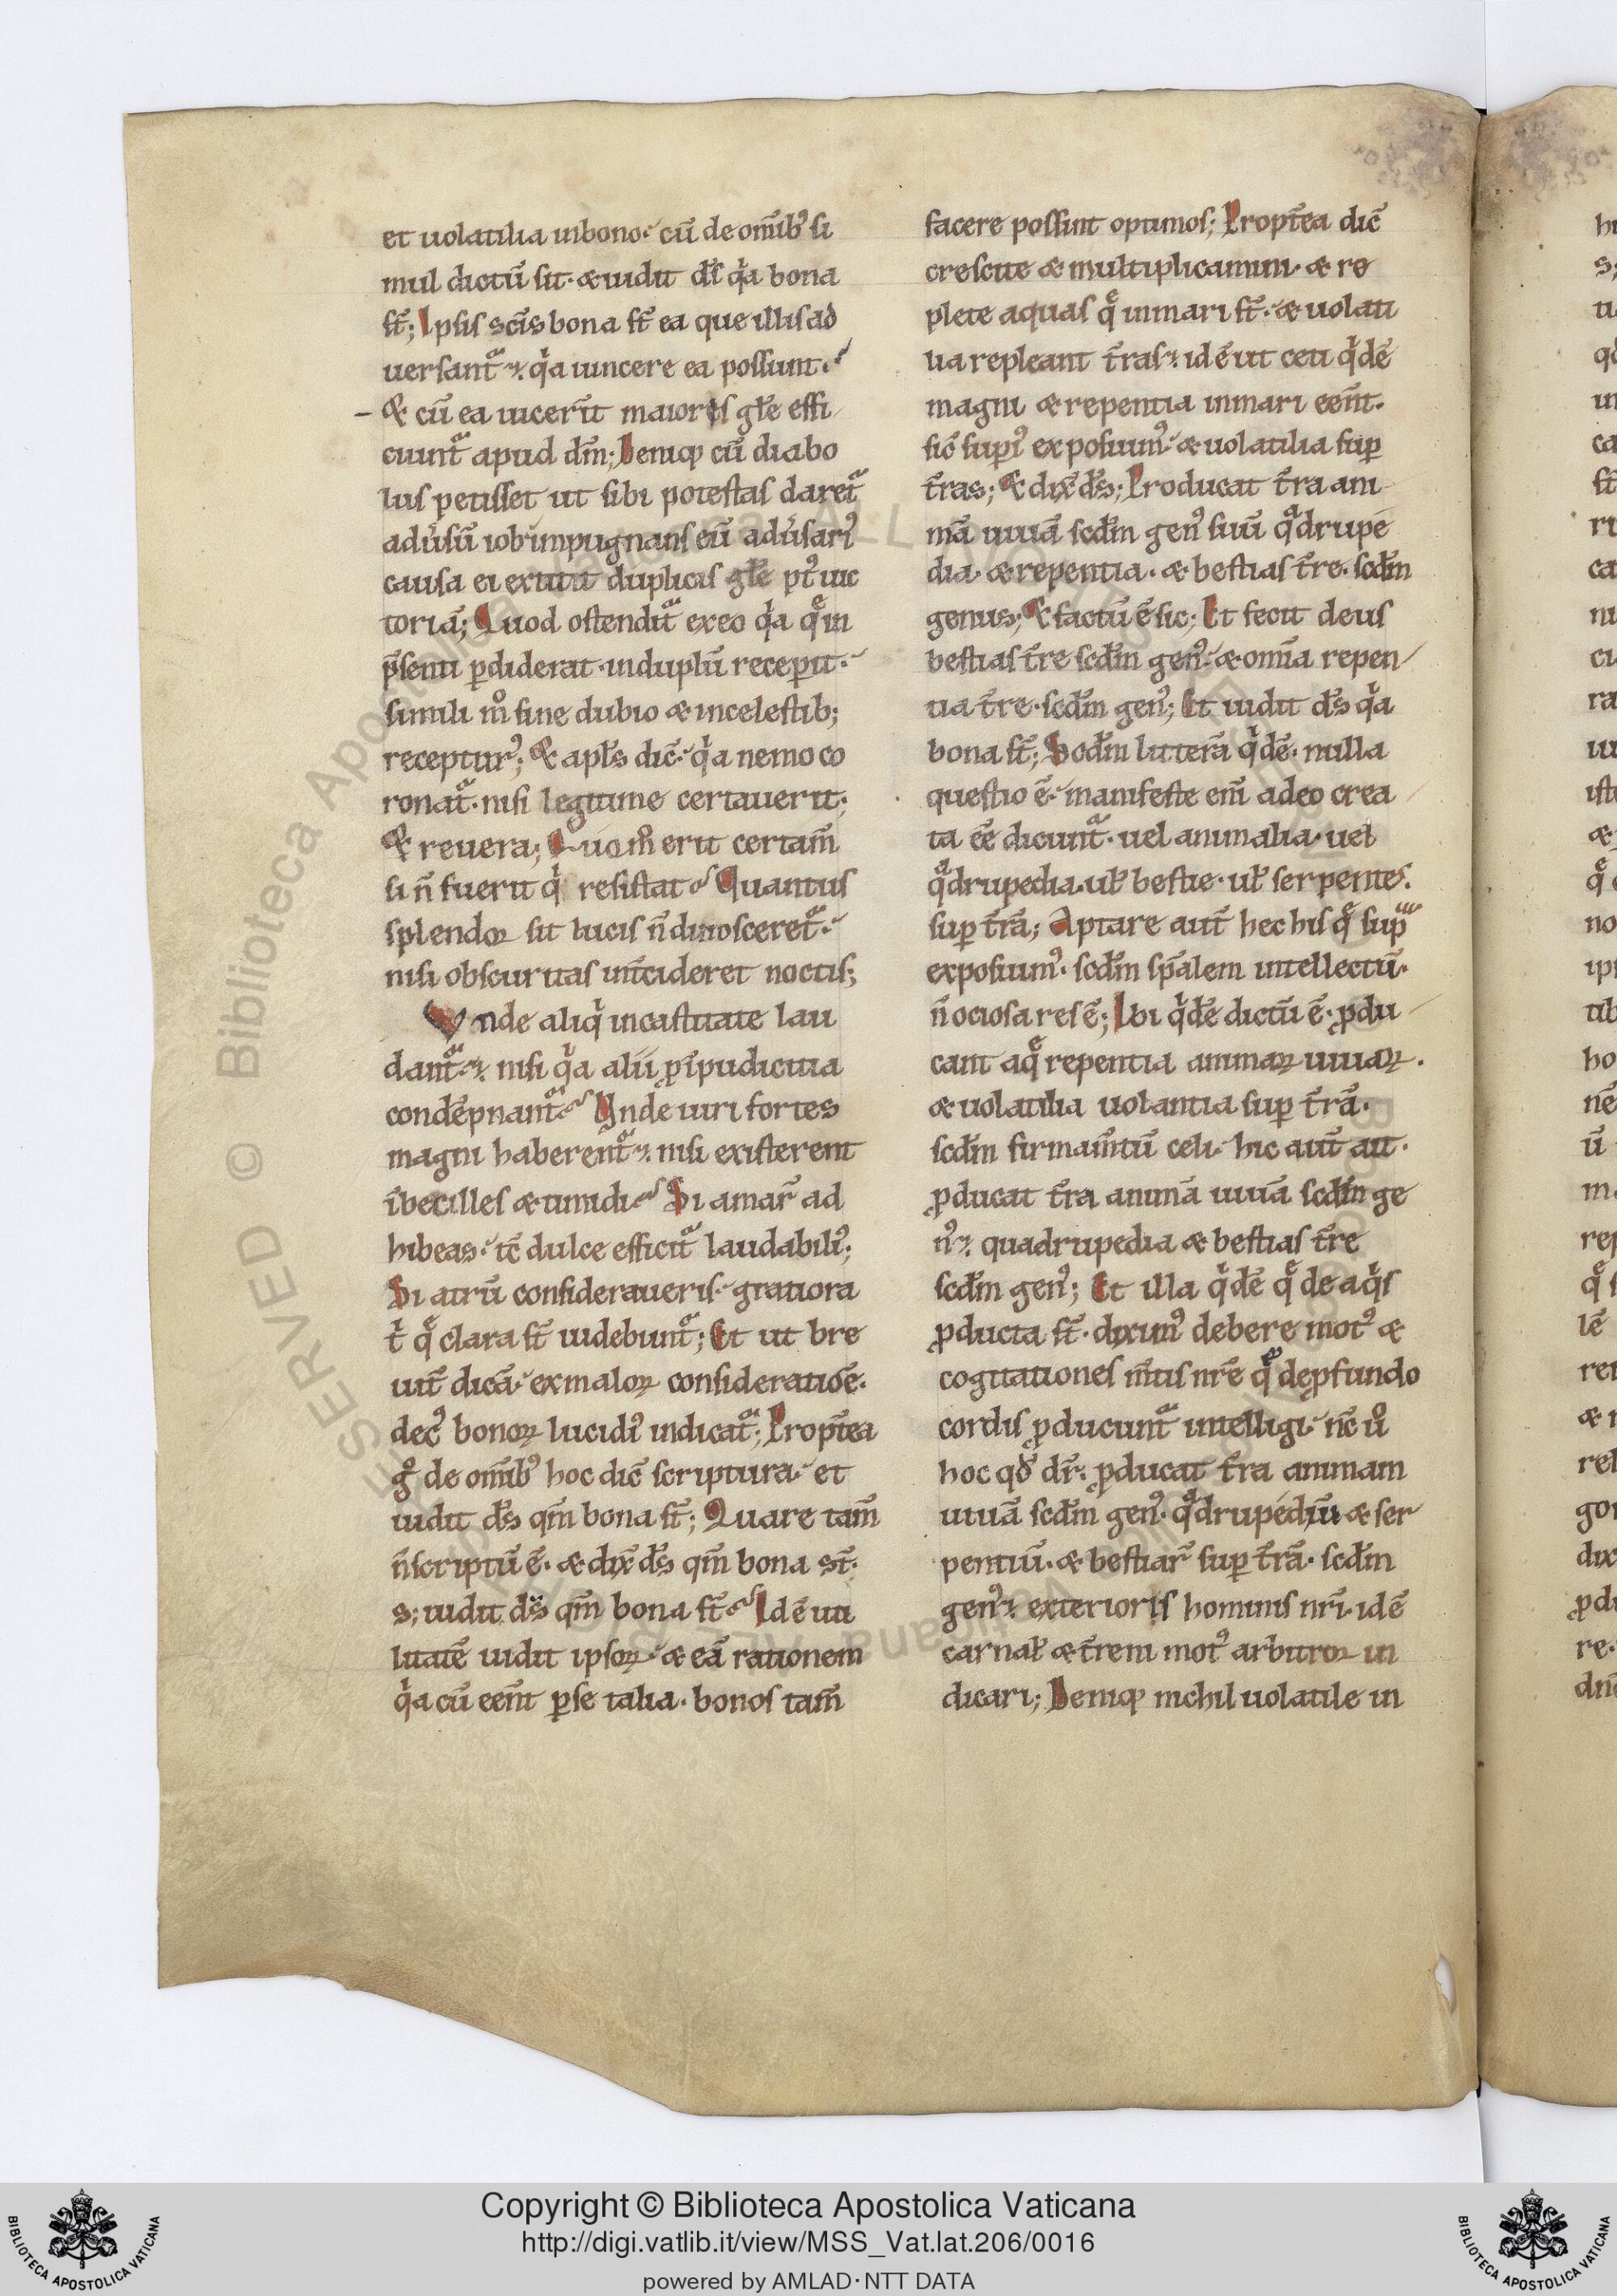 et uolatilia inbono· cū de om̄ib⁹ si
mul dictū sit· & uidit d̄s qͥa bona
st̄; Ipsis sc̄is bona st̄ ea que illis ad
uersant᷑· qͥa uincere ea possunt·
& cū ea uicerīt maioris gl̄e effi
ciunt᷑ apud dm̄; Deniq; cū diabo
lus petisset ut sibi potestas daret᷑
adúsū iob impugnans eū adúsari⁹
causa ei extitit duplicis gl̄e pt⁹ uic
toriā; Quod ostendit᷑ exeo qͥa qͤ in
p̄senti ꝑdiderat· induplū recepit·
simili m̊ sine dubio & incelestib;
receptur⁹; & apl̄s dic̄· qͥa nemo co
ronat᷑· nisi legitime certauerit;
& reuera; Quom̊ erit certam̄
si n̄ fuerit qͥ resistat Quantus
splendoꝝ sit lucis n̄ dinosceret᷑·
nisi obscuritas int̄cideret noctis;
Vnde aliqͥ incastitate lau
dant᷑· nisi qͥa alii ꝑ īpudicitia
condēpnant᷑ Vnde uiri fortes
magni haberent᷑· nisi existerent
ībecilles & timidi Si amar̄ ad
hibeas· tc̄ dulce efficit᷑ laudabili⁹;
Si atrū consideraueris· gratiora
t̄ qͤ clara st̄ uidebunt᷑; Et ut bre
uit̄ dicā· exmaloꝝ consideratiōe·
dec⁹ bonoꝝ lucidi⁹ indicat᷑; Propt̄ea
g̊ de om̄ib⁹ hoc dic̄ scriptura· et
uidit d̄s qm̄ bona st̄; Quare tam̄
n̄ scriptū ē· & dix̄ d̄s qm̄ bona st̄·
s; uidit d̄s qm̄ bona st̄ Idē uti
litatē uidit ipsoꝝ· & eā rationem
qͥa cū eēnt ꝑse talia· bonos tam̄
facere possint optimos; Propt̄ea dic̄
crescite & multiplicamini· & re
plete aquas qͤ inmari st̄· & uolati
ua repleant t̄ras· idē ut ceti qͥdē
magni & repentia inmari eēnt·
sic̄ supi⁹ exposuim⁹· & uolatilia suꝑ
t̄ras; & dix̄ d̄s; Producat t̄ra ani
mā uiuā scd̄m gen⁹ suū qͣdrupe
dia· & repentia· & bestias t̄re· scd̄m
genus; & factū ē sic; Et fecit deus
bestias t̄re scd̄m gen⁹· & om̄ia repen
tia t̄re· scd̄m gen⁹; Et uidit d̄s qͥa
bona st̄; Scd̄m litterā qͥdē· nulla
questio ē· manifeste em̄ adeo crea
ta eē dicunt᷑· uel animalia· uel
qͣdrupedia· ul̄ bestie· ul̄ serpentes·
suꝑ t̄rā; Aptare aut̄ hec his qͤ supͣ
exposuim⁹· scd̄m sp̄alem intellectū·
n̄ ociosa res ē; Ibi qͥdē dictū ē· ꝓdu
cant aqͤ repentia animaꝝ uiuaꝝ·
& uolatilia uolantia suꝑ t̄rā·
scd̄m firmam̄tū celi· hic aut̄ ait·
ꝓducat t̄ra animā uiuā scd̄m ge
n⁹· quadrupedia & bestias t̄re
scd̄m gen⁹; Et illa qͥdē qͤ de aqͥs
ꝓducta st̄· dixim⁹ debere mot⁹ &
cogitationes m̄tis nr̄e qͤ deꝓfundo
cordis ꝓducunt᷑ intelligi· nc̄ ů
hoc qđ dr̄· ꝓducat t̄ra animam
uiuā scd̄m gen⁹· qͣdrupediū & ser
pentiū· & bestiar̄ suꝑ t̄rā· scd̄m
gen⁹· exterioris hominis nr̄i· idē
carnal̄ & t̄reni mot⁹ arbitror in
dicari; Deniq; nichil uolatile in
Copyright © Biblioteca Apostolica Vaticana
http://digi.vatlib.it/view/MSS_Vat.lat.206/0016
powered by AMLAD·NTT DATA
BIBLIOTECA APOSTOLICA VATICANA
BIBLIOTECA APOSTOLICA VATICANA